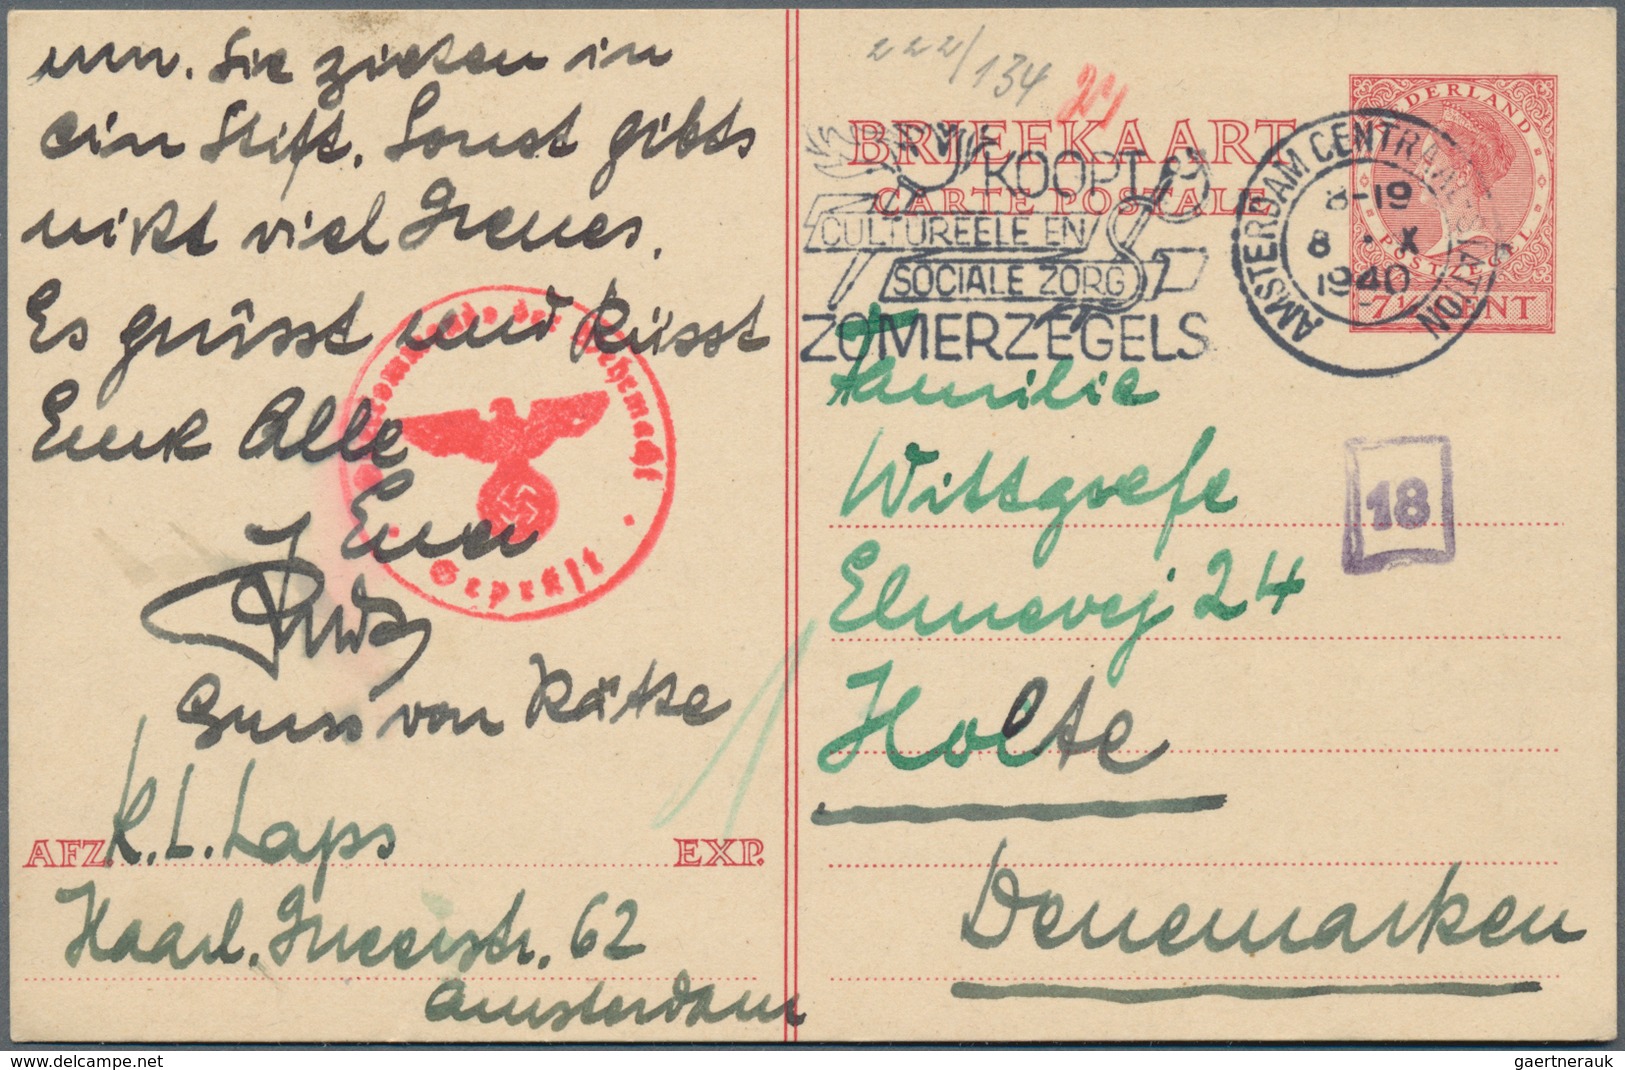 um. Sie ziehen in
ein Stift. Sonst gibts
nicht viel Neues.
Es grüsst und küsst
Euch Alle
Euer
Gruss von Käthe
AFZ. K. L. Laps EXP.
Haarl.meerstr. 62
Amsterdam
Oberkommando der Wehrmacht
Geprüft
222/134 24
BRIEFKAART
CARTE POSTALE
KOOPT
CULTUREELE EN
SOCIALE ZORG
ZOMERZEGELS
AMSTERDAM CENTRAAL STATION
8-19
8 · X
1940
NEDERLAND
POSTZEGEL
7½ CENT
Familie
Wittgoefe
18
Elmevej 24
Holte
Denemarken
gaertnerauk
www.delcampe.net